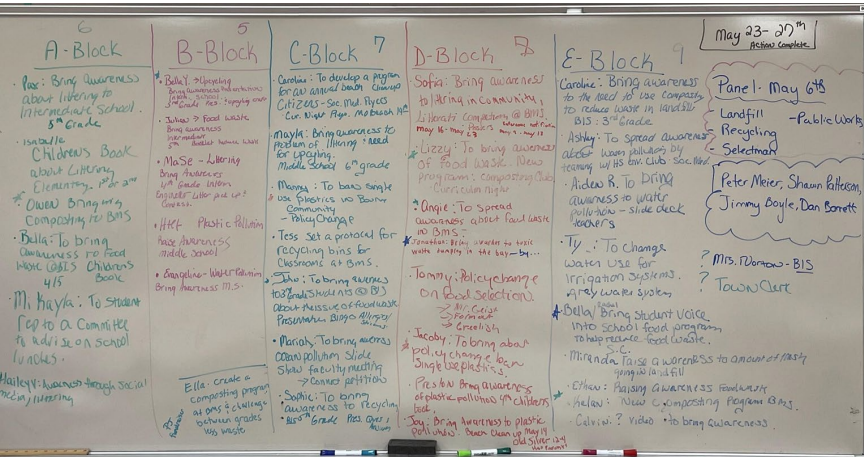 6
A-Block
Pax: Bring awareness
about littering to
Intermediate School.
5th Grade
Isabelle
Children's Book
about Littering
Elementary. 1st or 2nd
Owen Bring
Composting to BMS
Bella: To bring
awareness to Food
Waste @BIS Childrens
4/5 Book
M. Kayla: To student
rep to a Committee
to advise on school
lunches.
Hailey: Awareness through social
media, littering
5
B-Block
Bella Y. → Upcycling
Bring awareness
3rd Grade Pres. upcycling
→ Food Waste
Bring awareness
Intermediate
5th
MaSe - Littering
Bring Awareness
4th Grade
Litter pick up?
Plastic Pollution
Raise Awareness
middle school
Evangeline - Water Pollution
Bring Awareness M.S.
Ella: create a
composting program
at BMS & challenge
between grades
less waste
7
C-Block
Caroline: To develop a program
for an annual beach cleanup
Citizens - Soc. Med. Flyers
Cur. Night Flags. Mo beach
Mayla: Bringing awareness to
problem of littering & need
for upcycling.
Middle School 6th grade
Manny: To ban single
use plastics in
Community
- Policy Change
Tess set a protocol for
recycling bins for
classrooms at BMS.
John: To bring awareness
to 3rd grade students @ BIS
about the issue of food waste
Presentation Bingo
Mariah: To bring awareness
ocean pollution Slide
Show faculty meeting
→ Connect petition
Sophie: To bring
awareness to recycling
Grade Pres.
8
D-Block
Sofia: Bring awareness
to littering in community,
Litterati Competitions @ BMS.
may 16 - may 23
Lizzy: To bring awareness
of Food waste. New
program: composting Club
Curriculum Night
Angie: To Spread
awareness about food waste
in BMS.
Jonathan: Bring awareness to toxic
waste dumping in the bay
Tommy: Policy change
on food selection.
Jacoby: To bring about
policy change ban
Single use plastics.
Preston Bring awareness
of plastic pollution 4th childrens
book.
Joy: Bring Awareness to plastic
pollution. Beach Clean up May 14
Old Silver 12-4
9
E-Block
Caroline: Bring awareness
to the need to use composting
to reduce waste in landfill
BIS: 3rd Grade
Ashley: To spread awareness
about water pollution by
teaming w/ HS Env. Club: Soc. Med
Aiden R. To bring
awareness to water
pollution - slide deck
teachers
Ty : To Change
water use for
irrigation systems.
grey water system
Bella: Bring Student Voice
into school food program
to help reduce food waste.
S.C.
Miranda: Raise awareness to amount of trash
going in landfill
Ethan: Raising Awareness Foodwaste
Kelan: New Composting Program BMS.
Calvin: ? video · to bring awareness.
May 23-27th
Action Complete
Panel - May 6th
- Landfill
- Public Works
- Recycling
- Selectman
Peter Meier, Shawn Patterson,
Jimmy Boyle, Dan Barrett
? Mrs. Norton - BIS
? Town